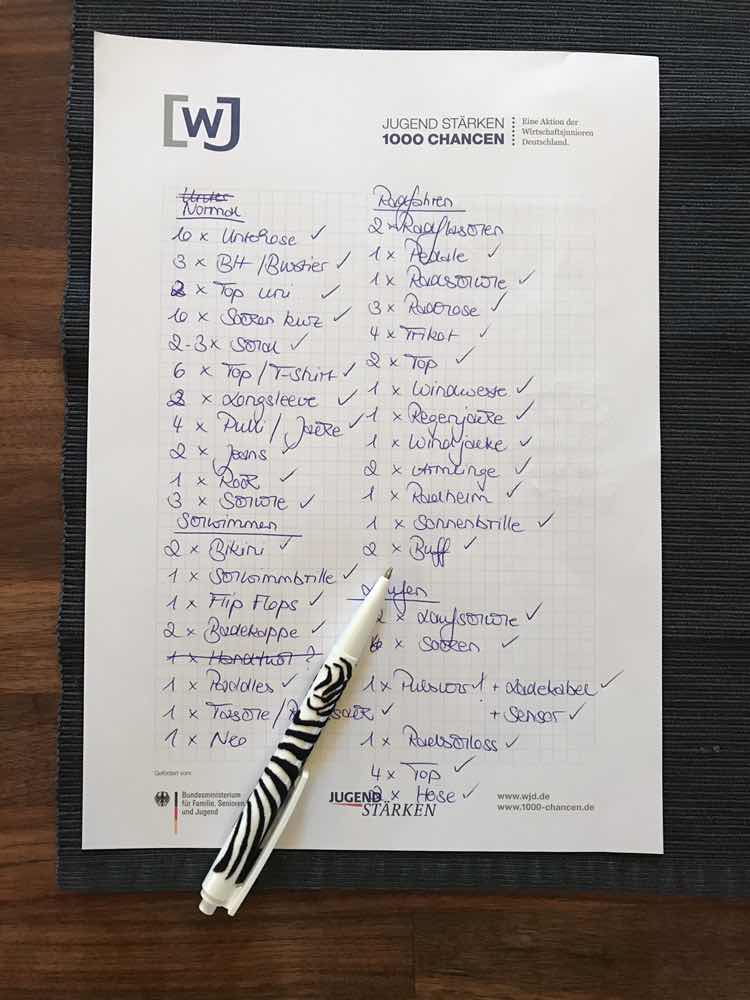 [WJ
JUGEND STÄRKEN
1000 CHANCEN
Eine Aktion der
Wirtschaftsjunioren
Deutschland.
Unter
Normal
10 x Unterhose ✓
3 x BH / Bustier ✓
2 x Top uni ✓
10 x Socken kurz ✓
2-3 x Schal ✓
6 x Top / T-Shirt ✓
2 x Longsleeve ✓
4 x Pulli / Jacke ✓
2 x Jeans ✓
1 x Rock ✓
3 x Schuhe ✓
Schwimmen
2 x Bikini ✓
1 x Schwimmbrille ✓
1 x Flip Flops ✓
2 x Badekappe ✓
1 x Handtuch ?
1 x Paddles ✓
1 x Tasche / ✓
1 x Neo ✓
Radfahren
2 x Radflaschen
1 x Pedale ✓
1 x Radschuhe ✓
3 x Radhose ✓
4 x Trikot ✓
2 x Top ✓
1 x Windweste ✓
1 x Regenjacke ✓
1 x Windjacke ✓
2 x Armlinge ✓
1 x Radhelm ✓
1 x Sonnenbrille ✓
2 x Buff ✓
Laufen
2 x Laufschuhe ✓
x Socken ✓
1 x Pulsuhr + Ladekabel ✓
+ Sensor ✓
1 x Radschloss ✓
4 x Top ✓
2 x Hose ✓
Gefördert vom:
Bundesministerium
für Familie, Senioren
und Jugend
JUGEND
STÄRKEN
www.wjd.de
www.1000-chancen.de